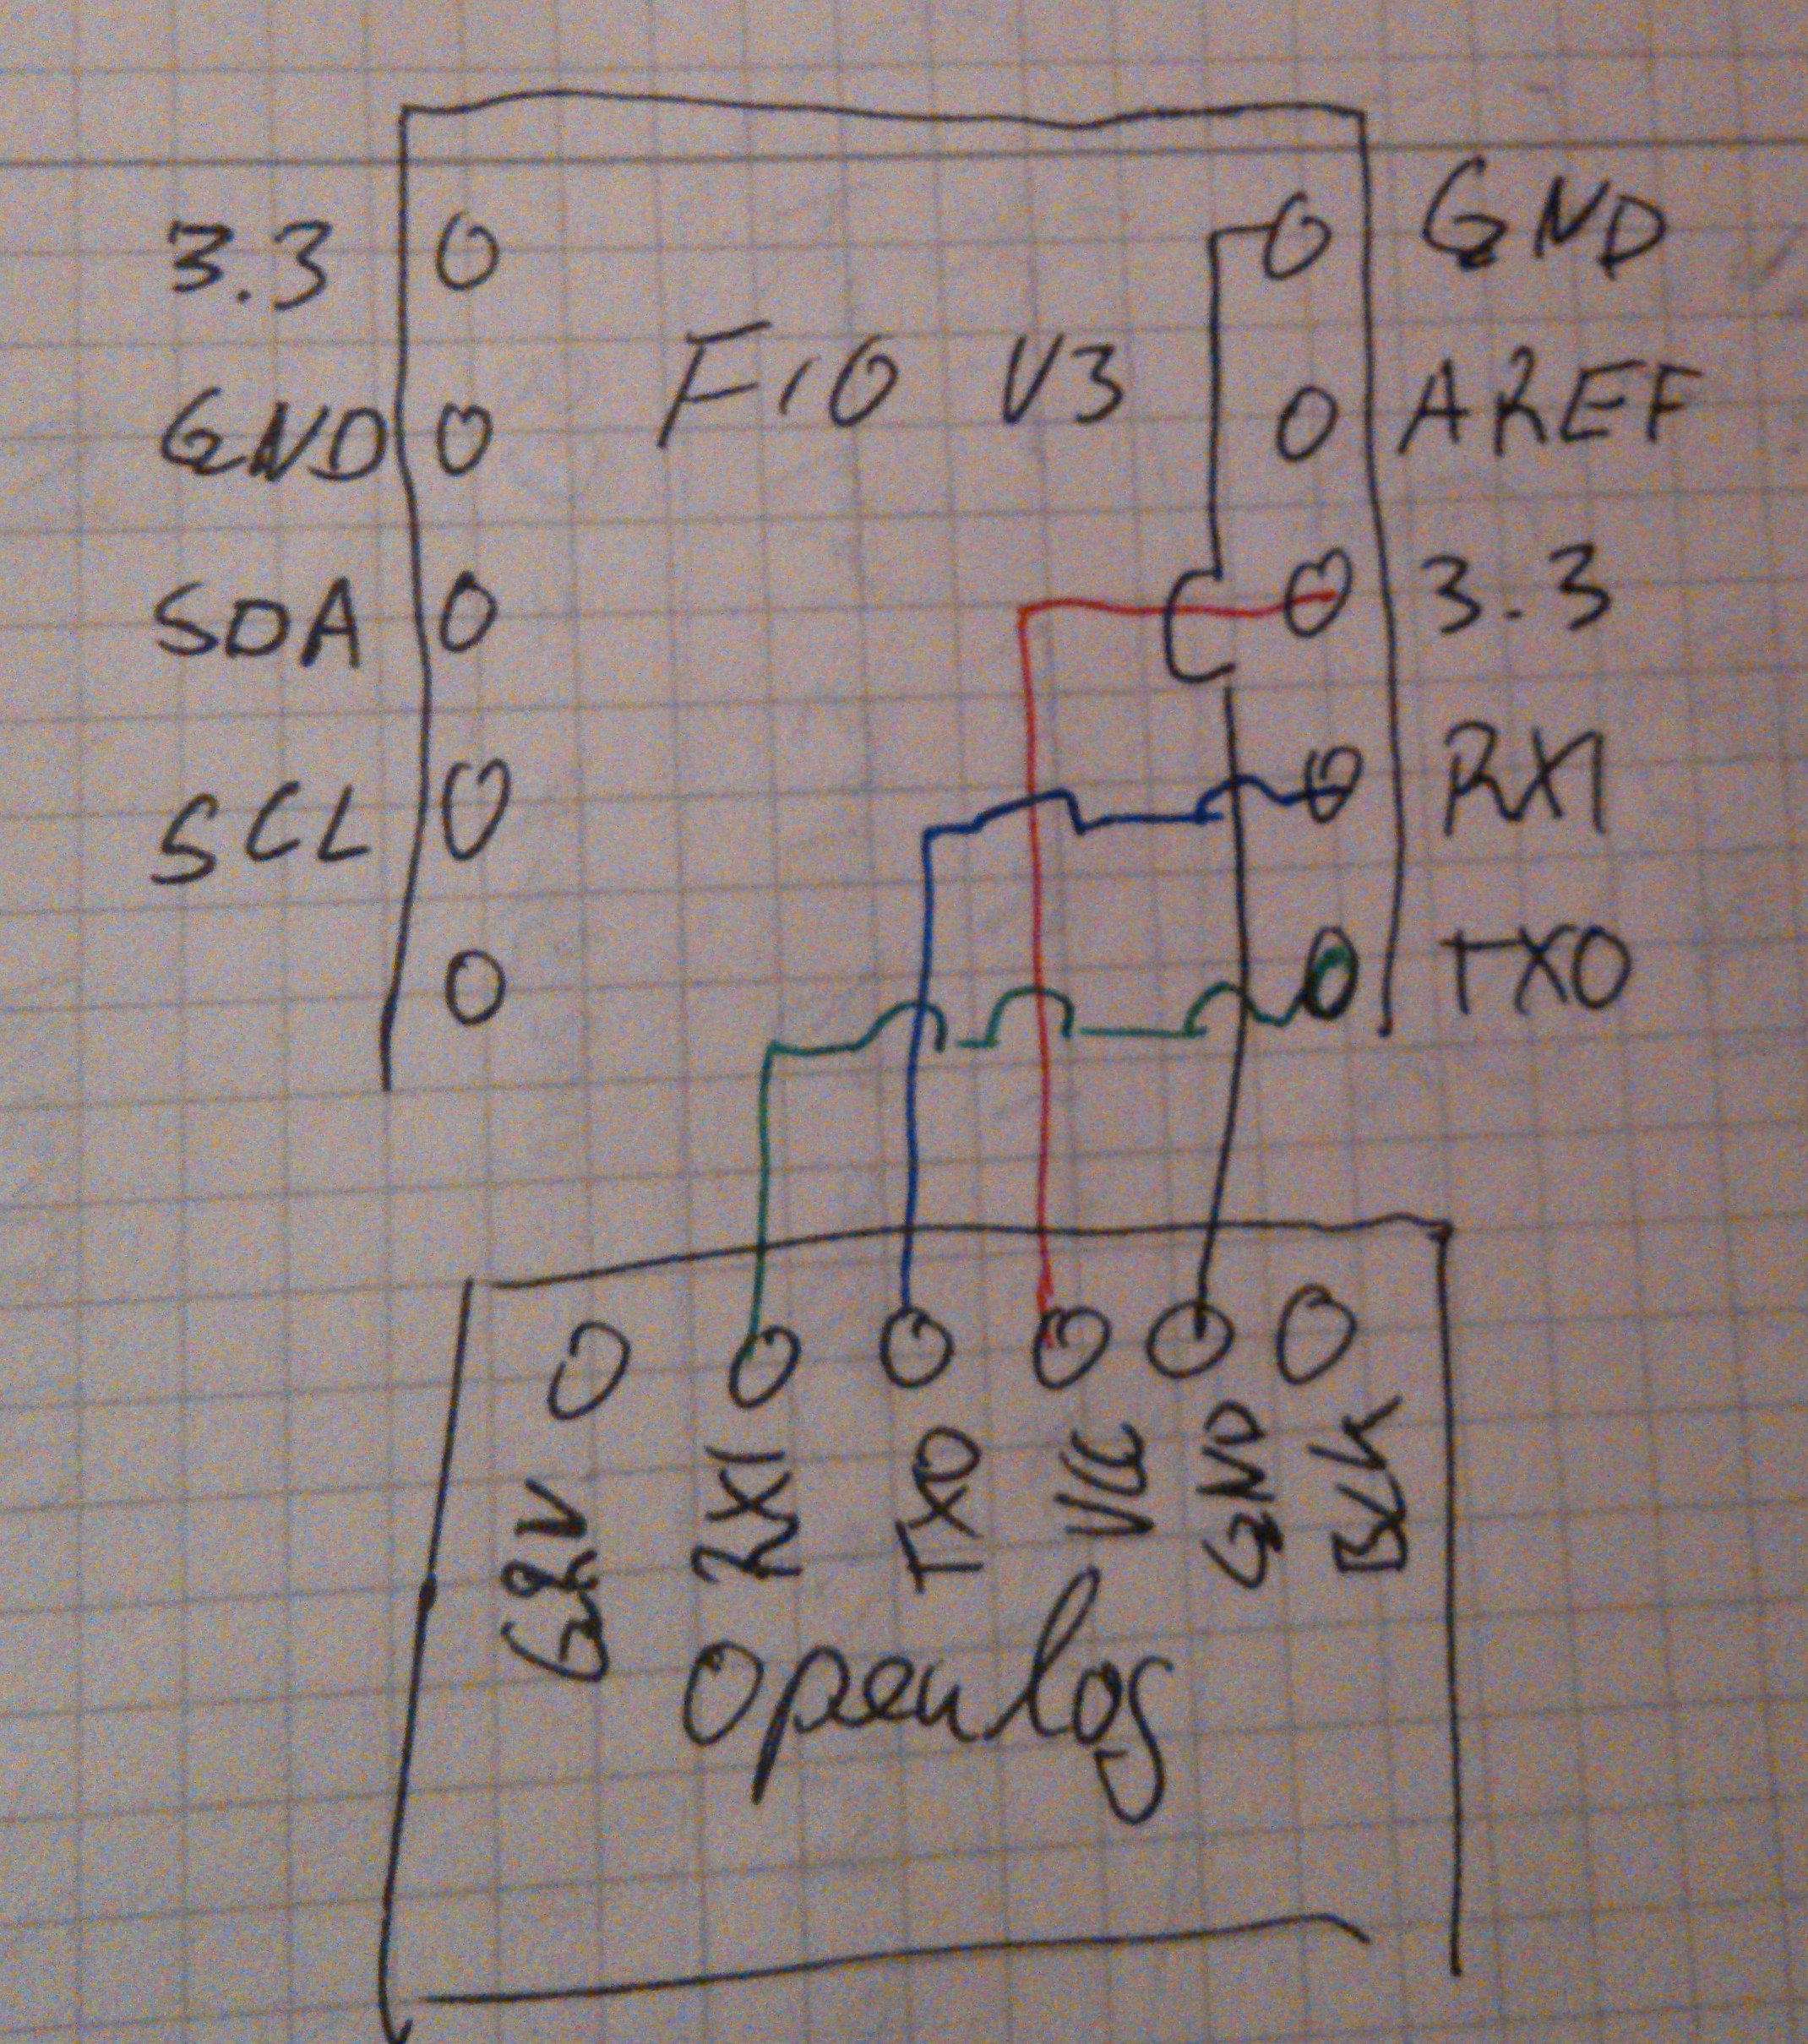 3.3 GND
FIO V3
GND AREF
SDA 3.3
SCL RXI
TXO
GRN RXI TXO VCC GND BLK
Openlog